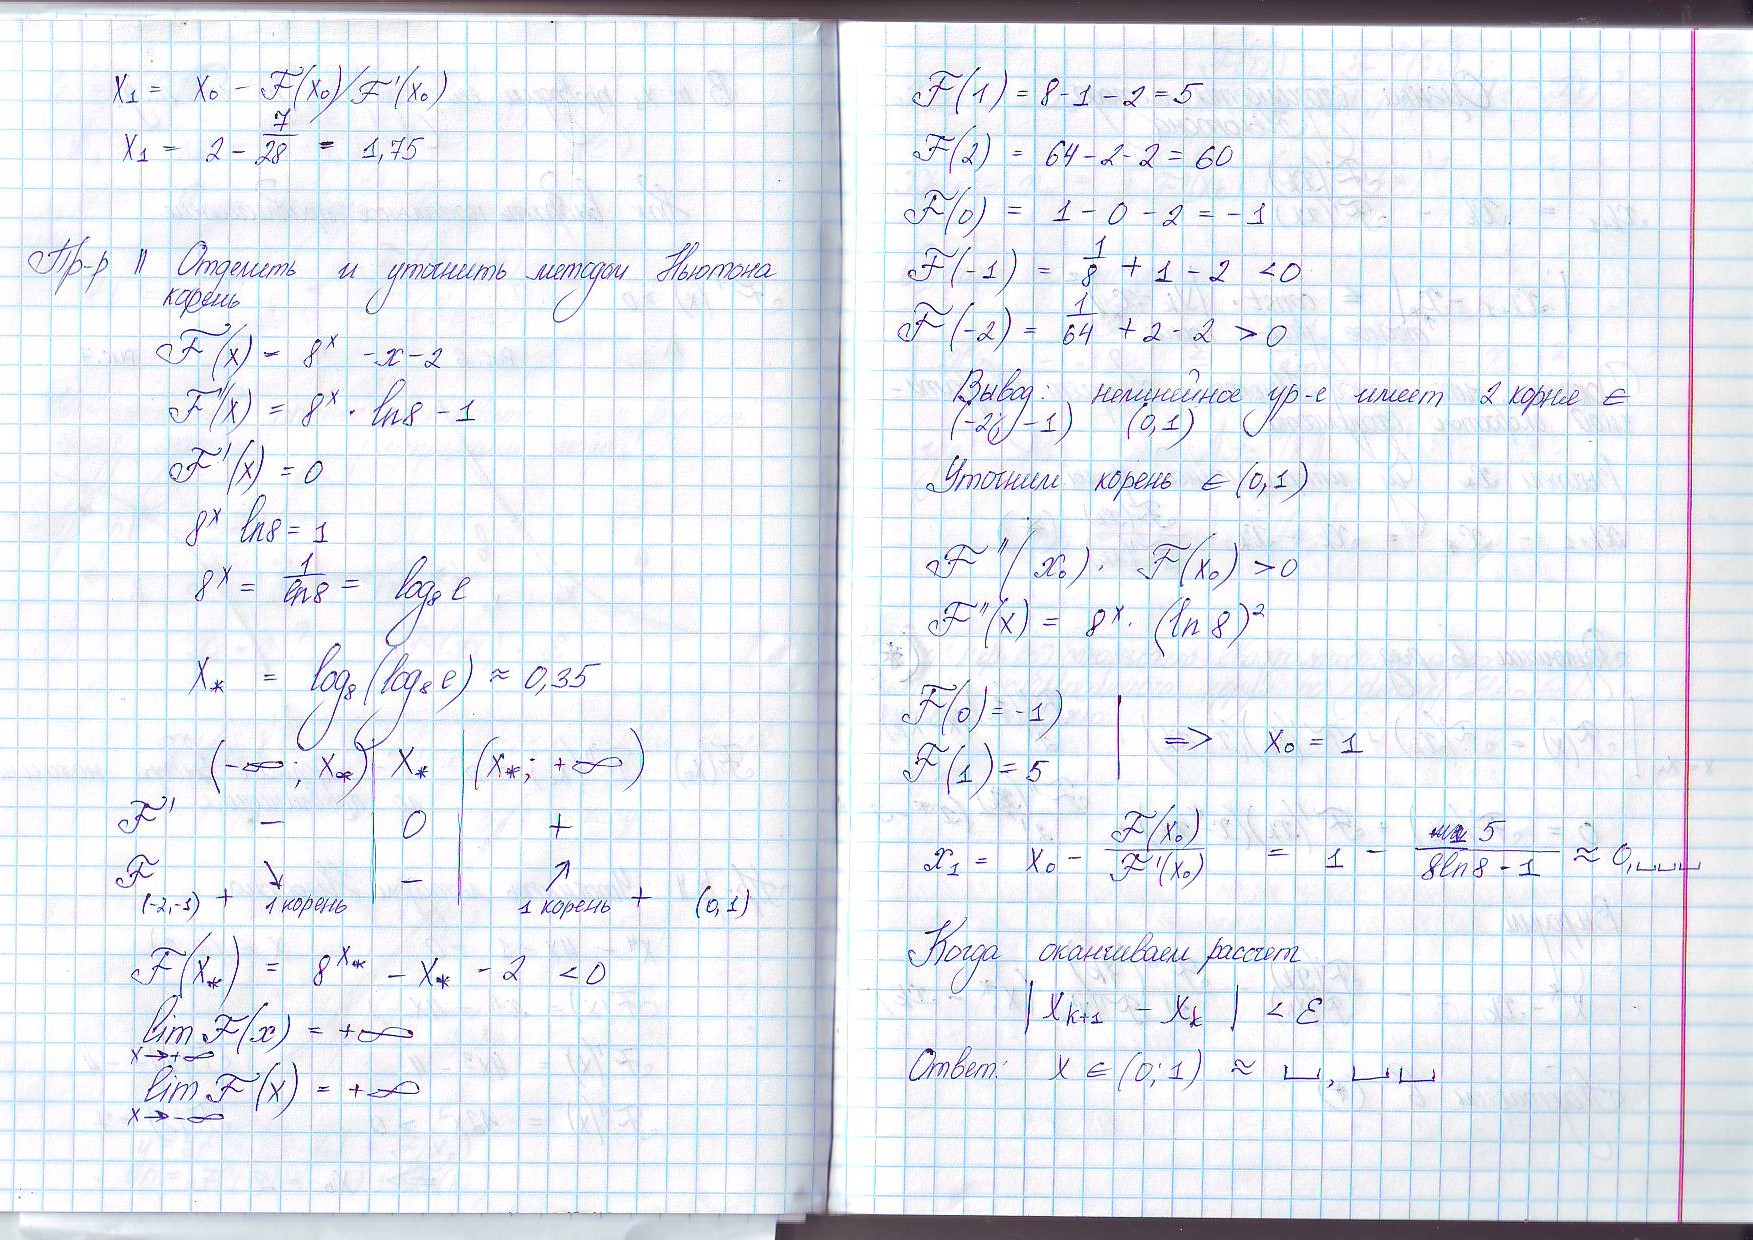 x₁ = x₀ - F(x₀)/F'(x₀)
x₁ = 2 - 7/28 = 1,75
Пр-р || Отделить и уточнить методом Ньютона
корень
F(x) = 8ˣ - x - 2
F'(x) = 8ˣ · ln8 - 1
F'(x) = 0
8ˣ ln8 = 1
8ˣ = 1/ln8 = log₈ e
x* = log₈(log₈ e) ≈ 0,35
(-∞; x*) | x* | (x*; +∞)
F' - 0 +
F ↘ - ↗
(-2,-1) + 1 корень 1 корень + (0,1)
F(x*) = 8^x* - x* - 2 < 0
lim F(x) = +∞
x→+∞
lim F(x) = +∞
x→-∞
F(1) = 8 - 1 - 2 = 5
F(2) = 64 - 2 - 2 = 60
F(0) = 1 - 0 - 2 = -1
F(-1) = 1/8 + 1 - 2 < 0
F(-2) = 1/64 + 2 - 2 > 0
Вывод: нелинейное ур-е имеет 2 корня ∈
(-2; -1) (0,1)
Уточним корень ∈ (0,1)
F''(x₀) · F(x₀) > 0
F''(x) = 8ˣ · (ln 8)²
F(0) = -1)
F(1) = 5 | => x₀ = 1
x₁ = x₀ - F(x₀)/F'(x₀) = 1 - 5/(8ln8 - 1) ≈ 0,␣␣␣
Когда оканчиваем рассчет
|x_{k+1} - x_k| < ε
Ответ: x ∈ (0; 1) ≈ ␣,␣␣